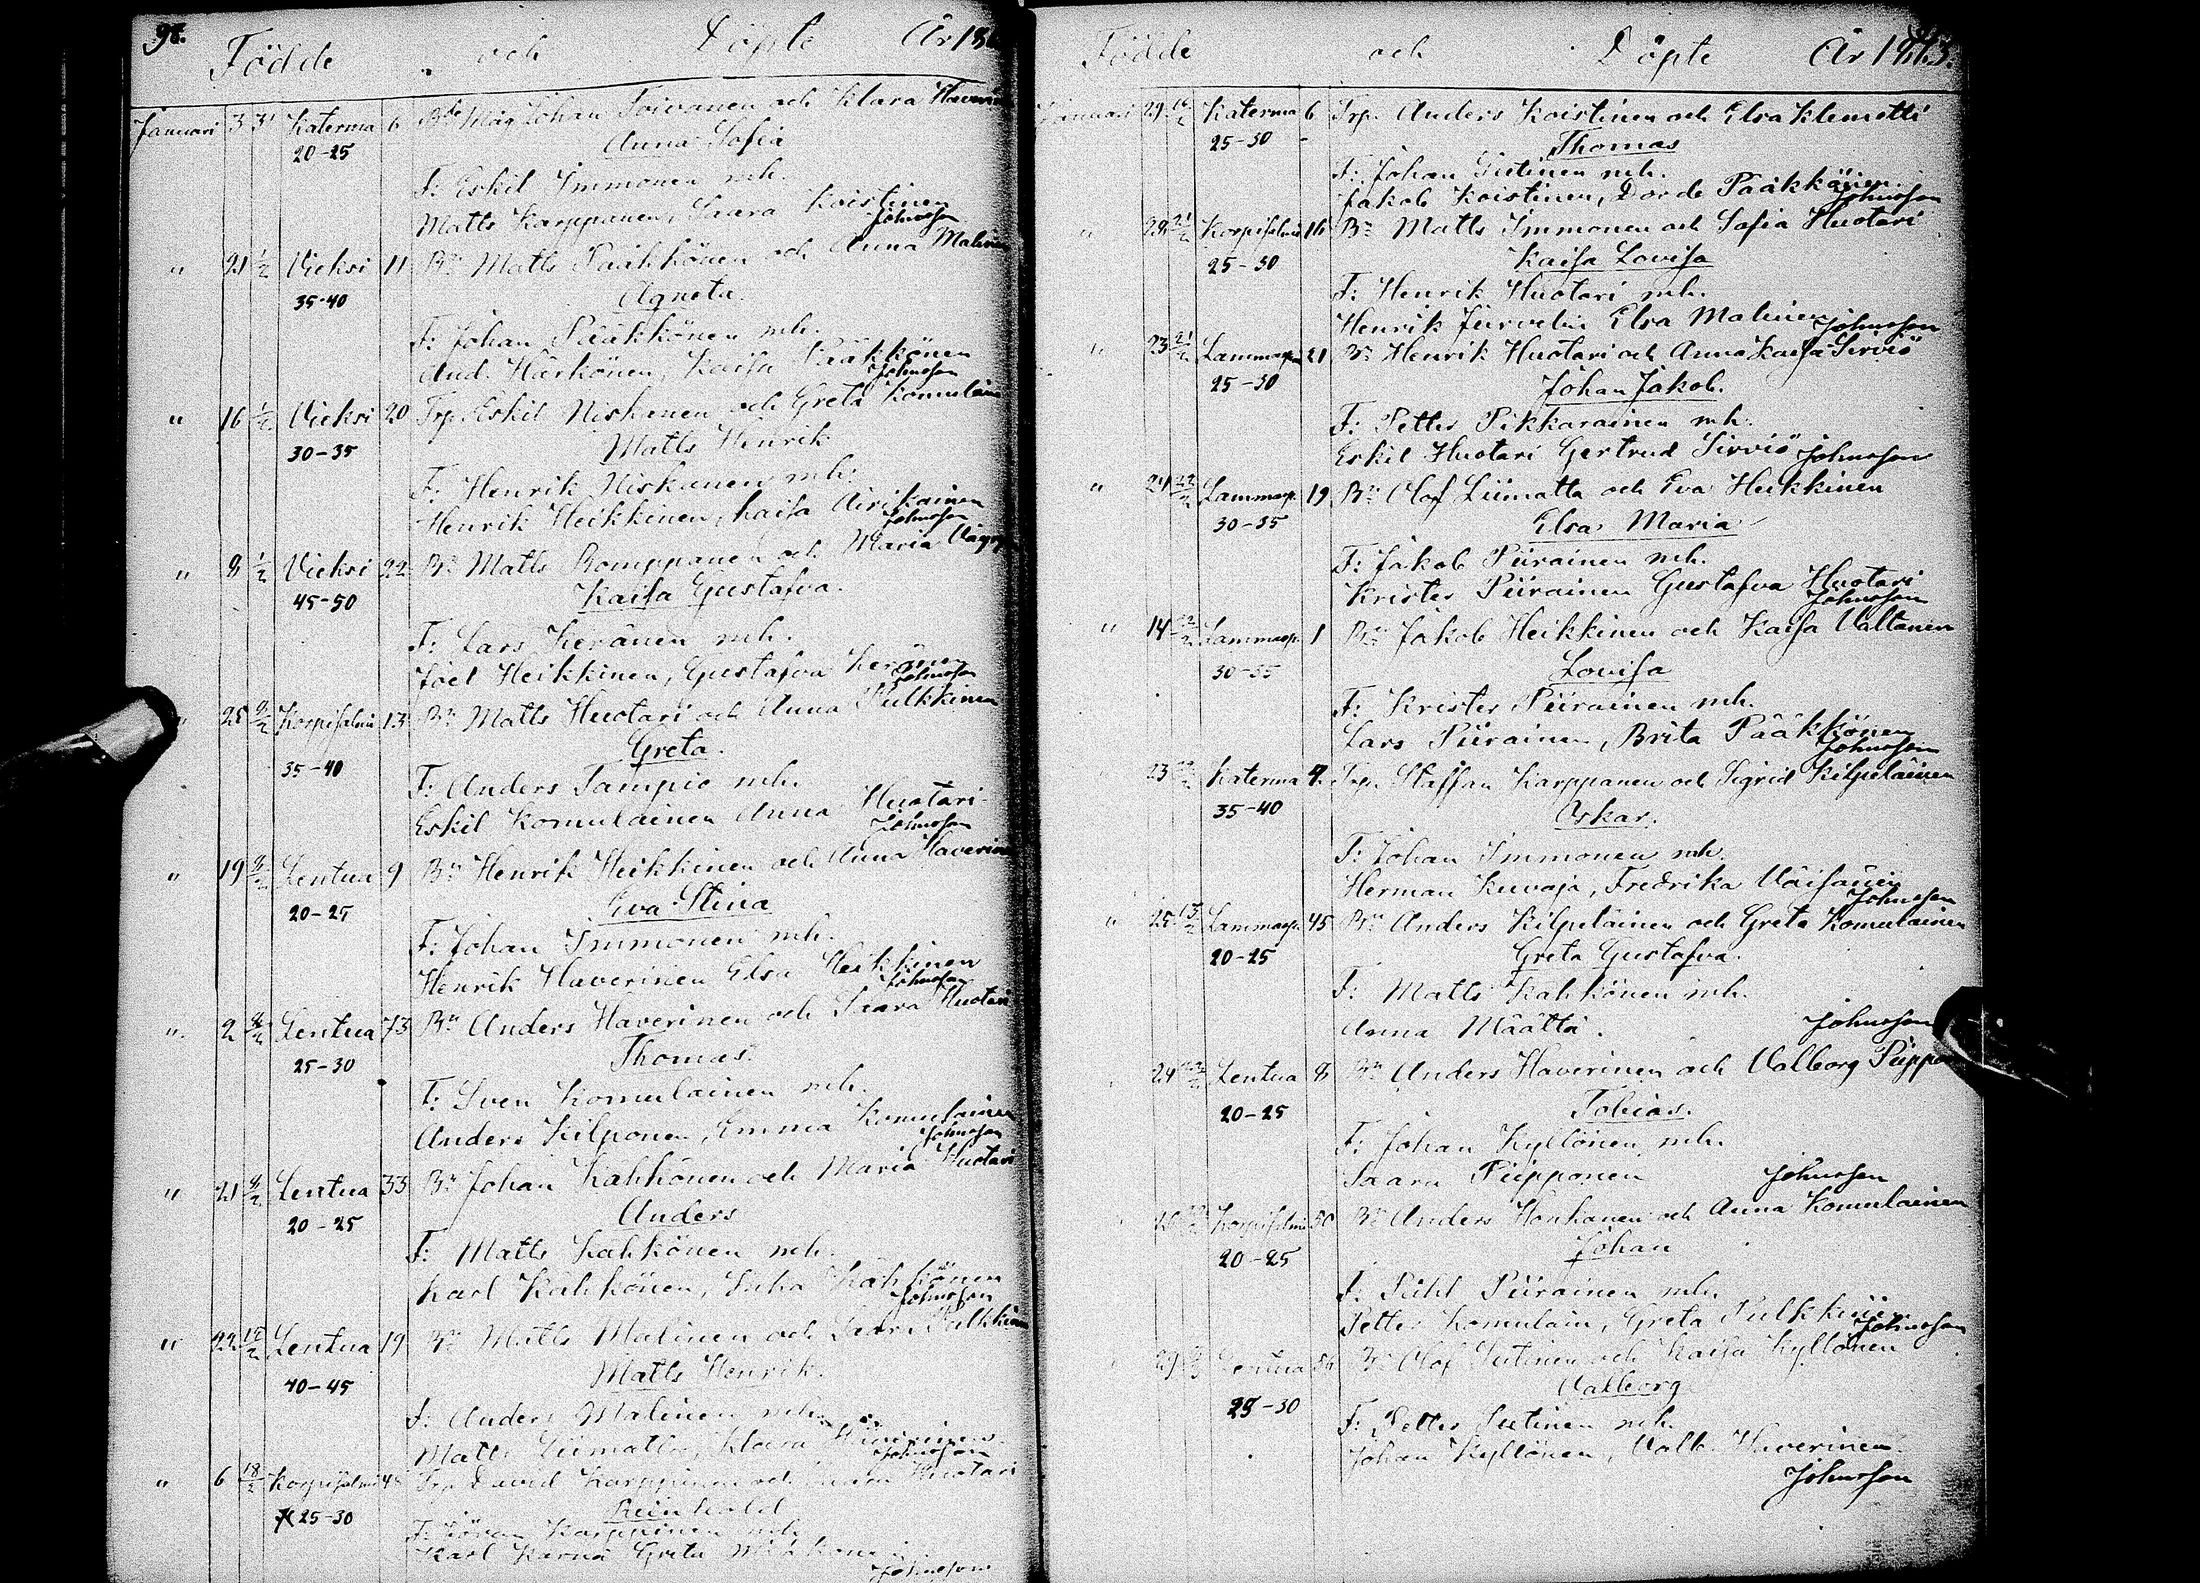 98.
Födde och Döpte År 18
Januari 3 31 Katerma 6 Johan Toivanen och Klara
20-25 Anna Sofia
F: Eskil Immonen mh.
Matts Karppanen, Saara Koistinen
Johnsson
" 21 1/2 Vieksi 11 Bn Matts Pääkkönen och Anna
35-40 Agneta.
F: Johan Pääkkönen mh.
And. Härkönen, Kaisa Pääkkönen
Johnsson
" 16 1/2 Vieksi 20 Trp. Eskil Niskanen och Greta
30-35 Matts Henrik
F: Henrik Niskanen mh.
Henrik Heikkinen, Kaisa Airikainen
Johnsson
" 8 1/2 Vieksi 22 Bn Matts Romppanen och Maria
45-50 Kaisa Gustafva.
F: Lars Keränen mh.
Joel Heikkinen, Gustafva Keränen
Johnsson
" 25 Korpisalmi 13 Bn Matts Huotari och Anna Pulkkinen
35-40 Greta.
F: Anders Tampio mh.
Eskil Komulainen Anna Huotari
Johnsson
" 19 Lentua 9 Bn Henrik Heikkinen och Anna
20-25 Eva Stina
F: Johan Immonen mh.
Henrik Haverinen Elsa Heikkinen
Johnsson
" 2 Lentua 73 Bn Anders Haverinen och Saara Huotari
25-30 Thomas.
F: Sven Komulainen mh.
Anders Kilponen, Emma Komulainen
Johnsson
" 21 Lentua 33 Bn Johan Kähkönen och Maria Huotari
20-25 Anders
F: Matts Kähkönen mh.
Karl Kähkönen, Kähkönen
Johnsson
" 22 Lentua 19 Bn Matts Malinen och Saara
40-45 Matts Henrik.
F: Anders Malinen mh.
Matts Liimatta, Klara
Johnsson
" 6 18/2 Korpisalmi 48 Trp David Karppinen och Huotari
25-30 Reinhold
F: Göran Karppinen mh.
Karl Karna Greta
Johnsson
Födde och Döpte År
Januari 29 Katerma 6 Trp. Anders Koistinen och Elsa Klemetti
25-30 Thomas
F: Johan mh.
Jakob Koistinen, Dorde Pääkkönen.
Johnsson
" 28 21/2 Korpisalmi 16 Bn Matts Immonen och Sofia Huotari
25-30 Kaisa Lovisa
F: Henrik Huotari mh.
Henrik Järvelin Elsa Malinen
Johnsson
" 23 21/2 Lammasp. 21 Bn Henrik Huotari och Anna Kaisa Sirviö
25-30 Johan Jakob.
F: Petter Pikkarainen mh.
Eskil Huotari Gertrud Sirviö Johnsson
" 24 22/2 Lammasp. 19 Bn Olof Liimatta och Eva Heikkinen
30-35 Elsa Maria
F: Jakob Piirainen mh.
Krister Piirainen Gustafva Huotari
Johnsson
" 14 22/2 Lammasp. 1 Bn Jakob Heikkinen och Kaisa Valtanen
30-35 Lovisa
F: Krister Piirainen mh.
Lars Piirainen, Brita Pääkkönen
Johnsson
23 Katerma 4. Trp. Staffan Karppanen och Sigrid Kilpeläinen
35-40 Oskar.
F: Johan Immonen mh.
Herman Kuvaja, Fredrika Väisänen
Johnsson
" 25 Lammasp. 45 Bn Anders Kilpeläinen och Greta Komulainen
20-25 Greta Gustafva.
F: Matts Kähkönen mh.
Anna Määttä. Johnsson
24 Lentua 8 Bn Anders Haverinen och Valborg
20-25 Tobias.
F: Johan Kyllönen mh.
Saara Piipponen Johnsson
Korpisalmi 50 Bn Anders Honkanen och Anna Komulainen
20-25 Johan
F: Piirainen mh.
Petter Komulain, Greta Pulkkinen
Johnsson
29 Lentua 56 Bn Olof och Kaisa Kyllönen
25-30 Valborg
F: Petter mh.
Johan Kyllönen, Valb. Haverinen.
Johnsson